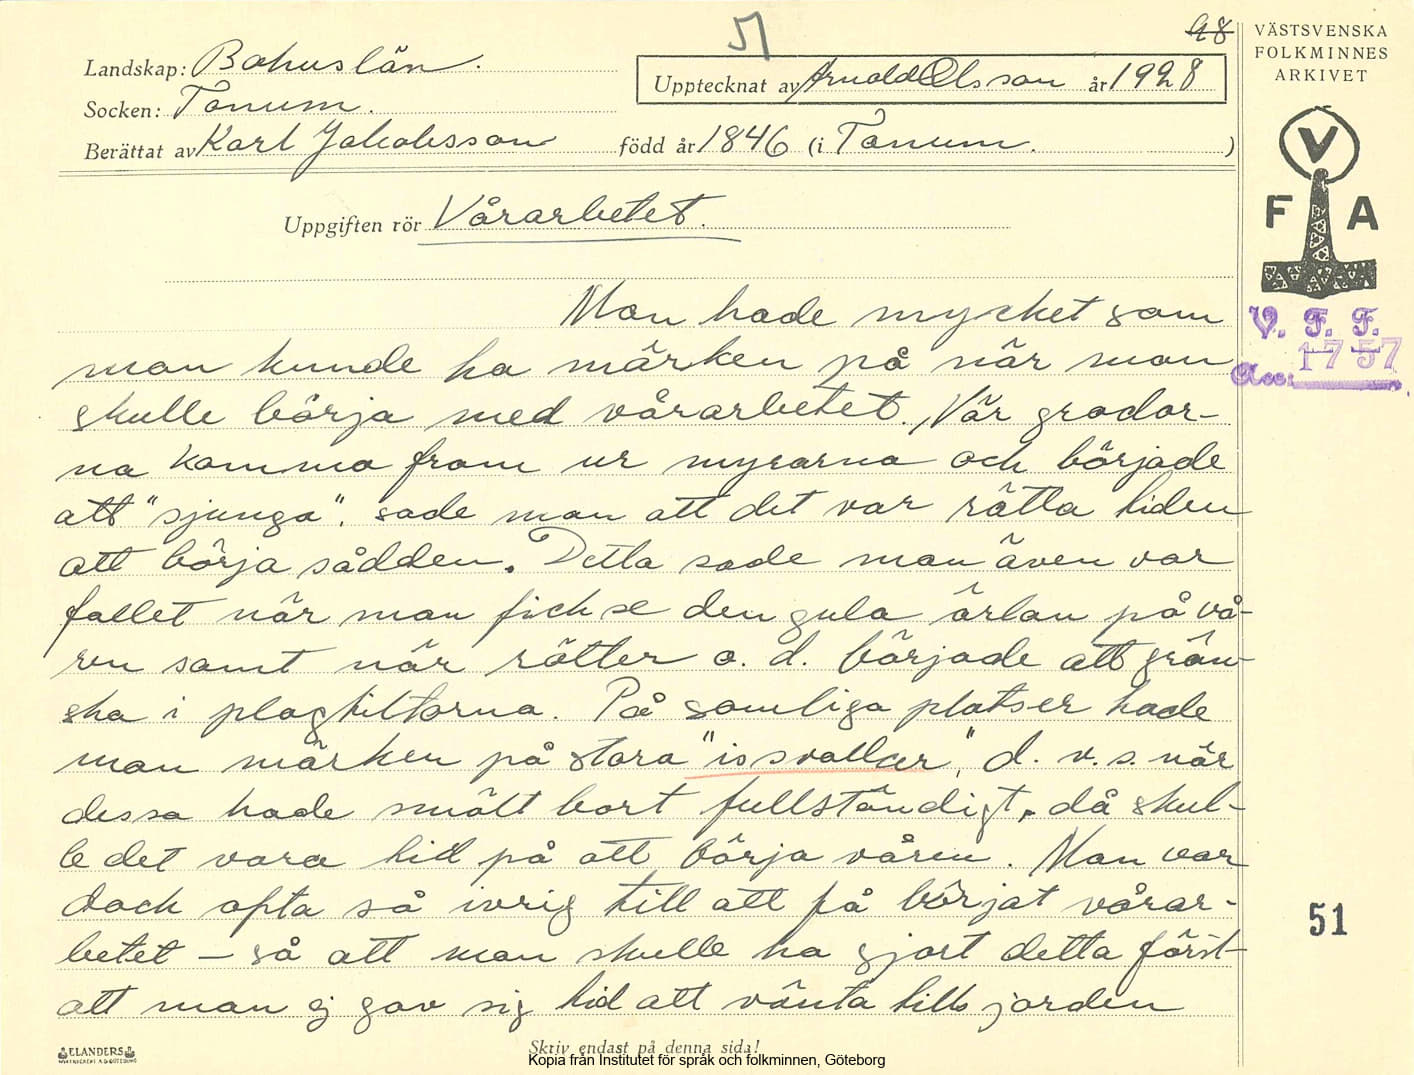 51
98
VÄSTSVENSKA
FOLKMINNES
ARKIVET
Landskap: Bohuslän.
Upptecknat av Arnold Olsson år 1928
Socken: Tanum.
Berättat av Karl Jakobsson född år 1846 (i Tanum. )
V
F A
Uppgiften rör Vårarbetet.
V. F. F.
Acc: 1757
Man hade mycket som
man kunde ha märken på när man
skulle börja med vårarbetet. När grodor-
na komma fram ur myrarna och började
att "sjunga". sade man att det var rätta tiden
att börja sådden. Detta sade man även var
fallet när man fick se den gula ärlan på vå-
ren samt när rötter o. d. började att grön-
ska i plogtiltorna. På somliga platser hade
man märken på stora "issvallar", d. v. s. när
dessa hade smält bort fullständigt, då skul-
le det vara tid på att börja våren. Man var
dock ofta så ivrig till att få börjat vårar-
betet – så att man skulle ha gjort detta först-
att man ej gav sig tid att vänta tills jorden
51
ELANDERS
Skriv endast på denna sida!
Kopia från Institutet för språk och folkminnen, Göteborg